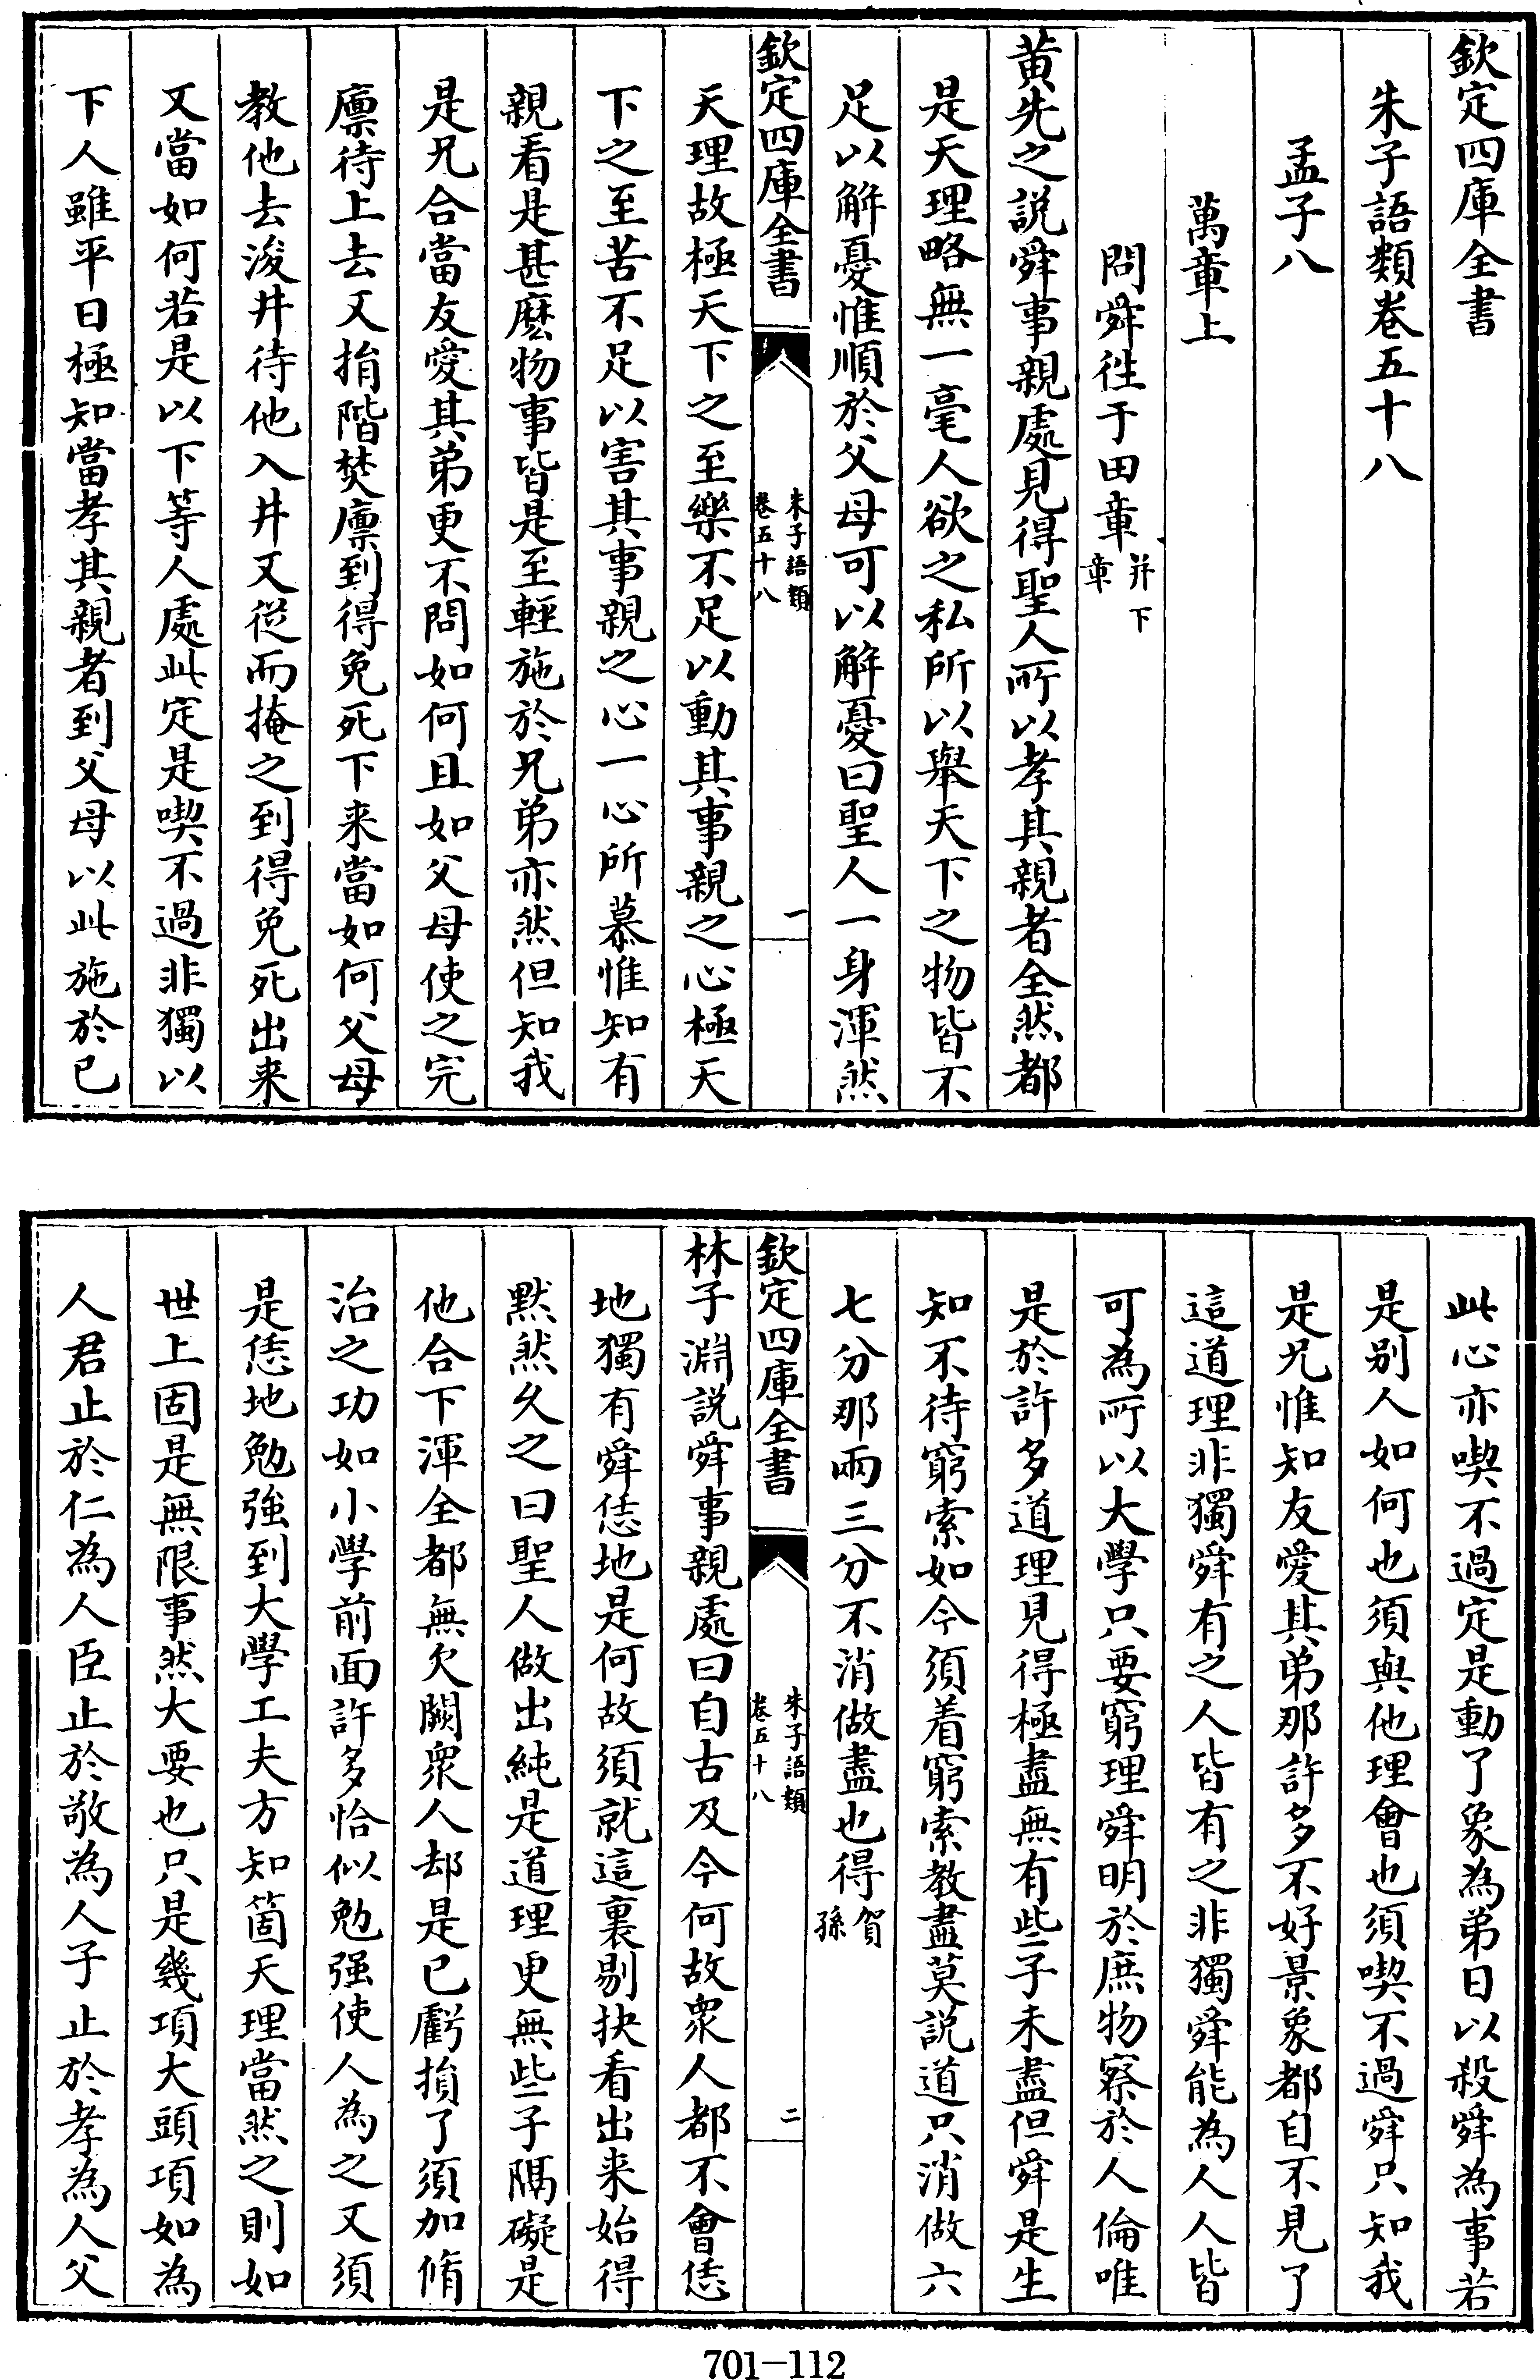 欽定四庫全書
朱子語類卷五十八
孟子八
萬章上
問舜往于田章并下章
黃先之説舜事親處見得聖人所以孝其親者全然都
是天理略無一毫人欲之私所以舉天下之物皆不
足以解憂惟順於父母可以解憂曰聖人一身渾然
欽定四庫全書
朱子語類
卷五十八
一
天理故極天下之至樂不足以動其事親之心極天
下之至苦不足以害其事親之心一心所慕惟知有
親看是甚麽物事皆是至輕施於兄弟亦然但知我
是兄合當友愛其弟更不問如何且如父母使之完
廪待上去又捐階焚廪到得免死下来當如何父母
教他去浚井待他入井又從而掩之到得免死出来
又當如何若是以下等人處此定是喫不過非獨以
下人雖平日極知當孝其親者到父母以此施於已
此心亦喫不過定是動了象為弟日以殺舜為事若
是别人如何也須與他理會也須喫不過舜只知我
是兄惟知友愛其弟那許多不好景象都自不見了
這道理非獨舜有之人皆有之非獨舜能為人人皆
可為所以大學只要窮理舜明於庶物察於人倫唯
是於許多道理見得極盡無有些子未盡但舜是生
知不待窮索如今須着窮索教盡莫説道只消做六
七分那兩三分不消做盡也得賀孫
欽定四庫全書
朱子語類
卷五十八
二
林子淵説舜事親處曰自古及今何故衆人都不會恁
地獨有舜恁地是何故須就這裏剔抉看出来始得
黙然久之曰聖人做出純是道理更無些子隔礙是
他合下渾全都無欠闕衆人却是已虧損了須加脩
治之功如小學前面許多恰似勉强使人為之又須
是恁地勉強到大學工夫方知箇天理當然之則如
世上固是無限事然大要也只是幾項大頭項如為
人君止於仁為人臣止於敬為人子止於孝為人父
701-112